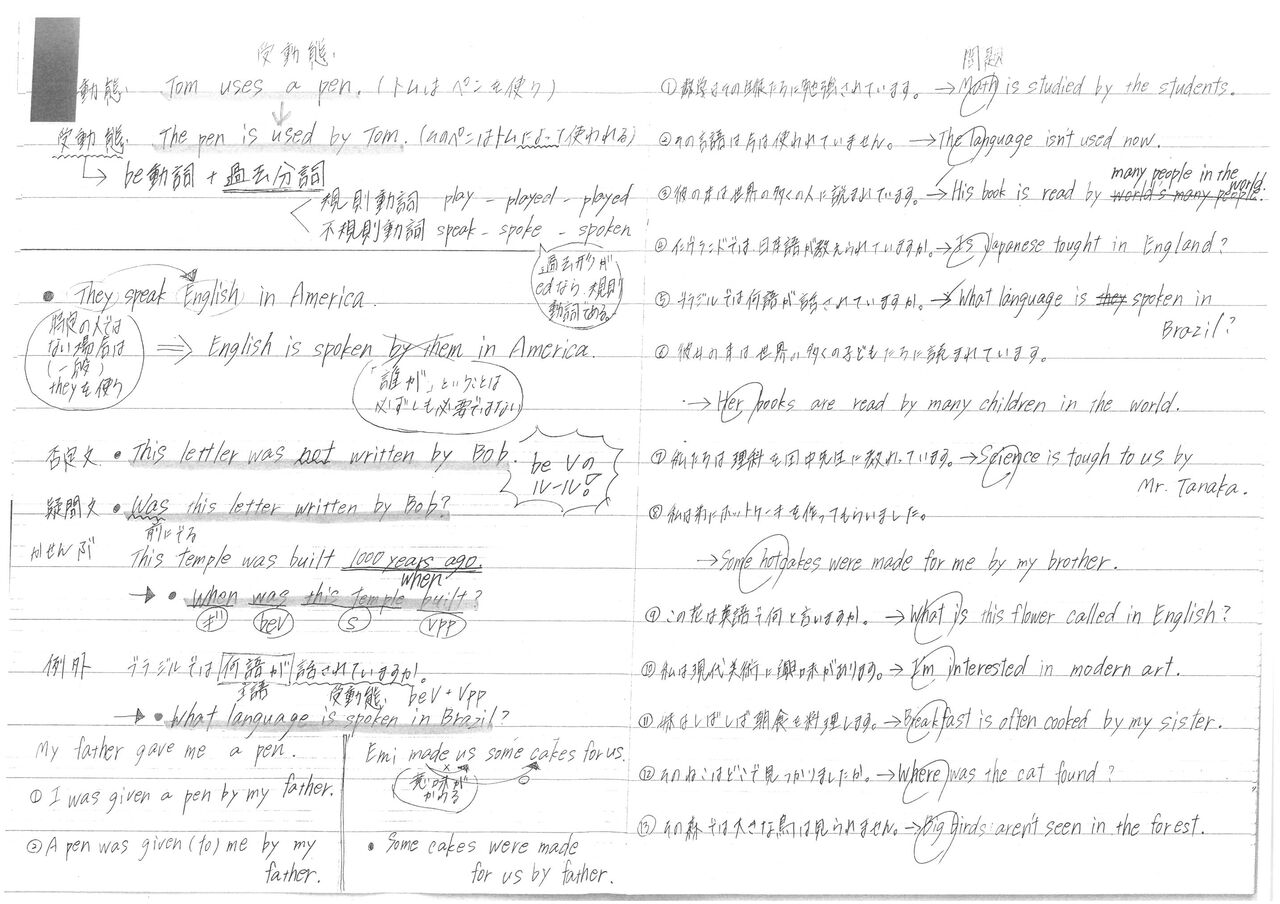 受動態.
動態. Tom uses a pen. (トムはペンを使う)
受動態. The pen is used by Tom. (このペンはトムによって使われる)
be動詞 + 過去分詞
規則動詞 play - played - played
不規則動詞 speak - spoke - spoken
過去形が
edなら規則
動詞である。
• They speak English in America.
特定の人では
ない場合は
(一般)
theyを使う
⇒ English is spoken by them in America.
「誰が」ということは
必ずしも必要ではない
否定文 • This lettler was not written by Bob.
be Vの
ルール!
疑問文 • Was this letter written by Bob?
前にでる
かせんぶ This temple was built 1000 years ago.
when
→ • When was this temple built?
ギ beV S Vpp
例外 ブラジルでは何語が話されていますか。
主語 受動態. beV + Vpp
→ • What language is spoken in Brazil?
My father gave me a pen.
① I was given a pen by my father.
② A pen was given (to) me by my
father.
Emi made us some cakes for us.
意味が
かわる
• Some cakes were made
for us by father.
問題
① 数学はその生徒たちに勉強されています。 → Math is studied by the students.
② その言語は今は使われていません。 → The language isn't used now.
many people in the world.
③ 彼の本は世界の多くの人に読まれています。 → His book is read by world's many people.
④ イングランドでは日本語が教えられていますか。 → Is Japanese tought in England?
⑤ ブラジルでは何語が話されていますか。 → What language is they spoken in
Brazil?
⑥ 彼女の本は世界の多くの子どもたちに読まれています。
→ Her books are read by many children in the world.
⑦ 私たちは理科を田中先生に教れています。 → Science is tough to us by
Mr. Tanaka.
⑧ 私は弟にホットケーキを作ってもらいました。
→ Some hotcakes were made for me by my brother.
⑨ この花は英語で何と言いますか。 → What is this flower called in English?
⑩ 私は現代美術に興味があります。 → I'm interested in modern art.
⑪ 妹はしばしば朝食を料理します。 → Breakfast is often cooked by my sister.
⑫ そのねこはどこで見つかりましたか。 → Where was the cat found?
⑬ その森では大きな鳥は見られません。 → Big birds aren't seen in the forest.